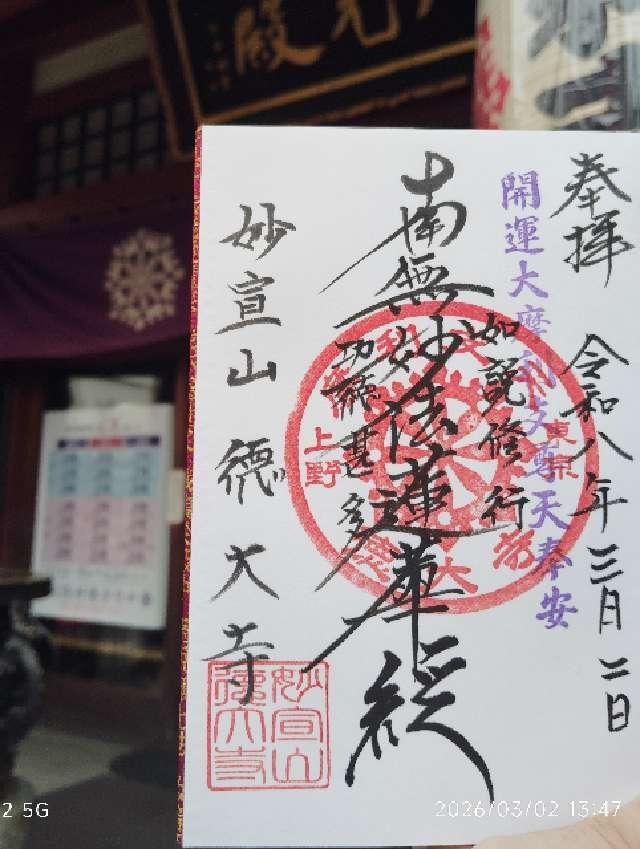 殿
奉拝
令和八年三月二日
開運大摩利支尊天奉安
如説修行
南無妙法蓮華経
功徳甚多
妙宣山
徳大寺
東京
上野
妙宣山
徳大寺
2 5G
2026/03/02 13:47